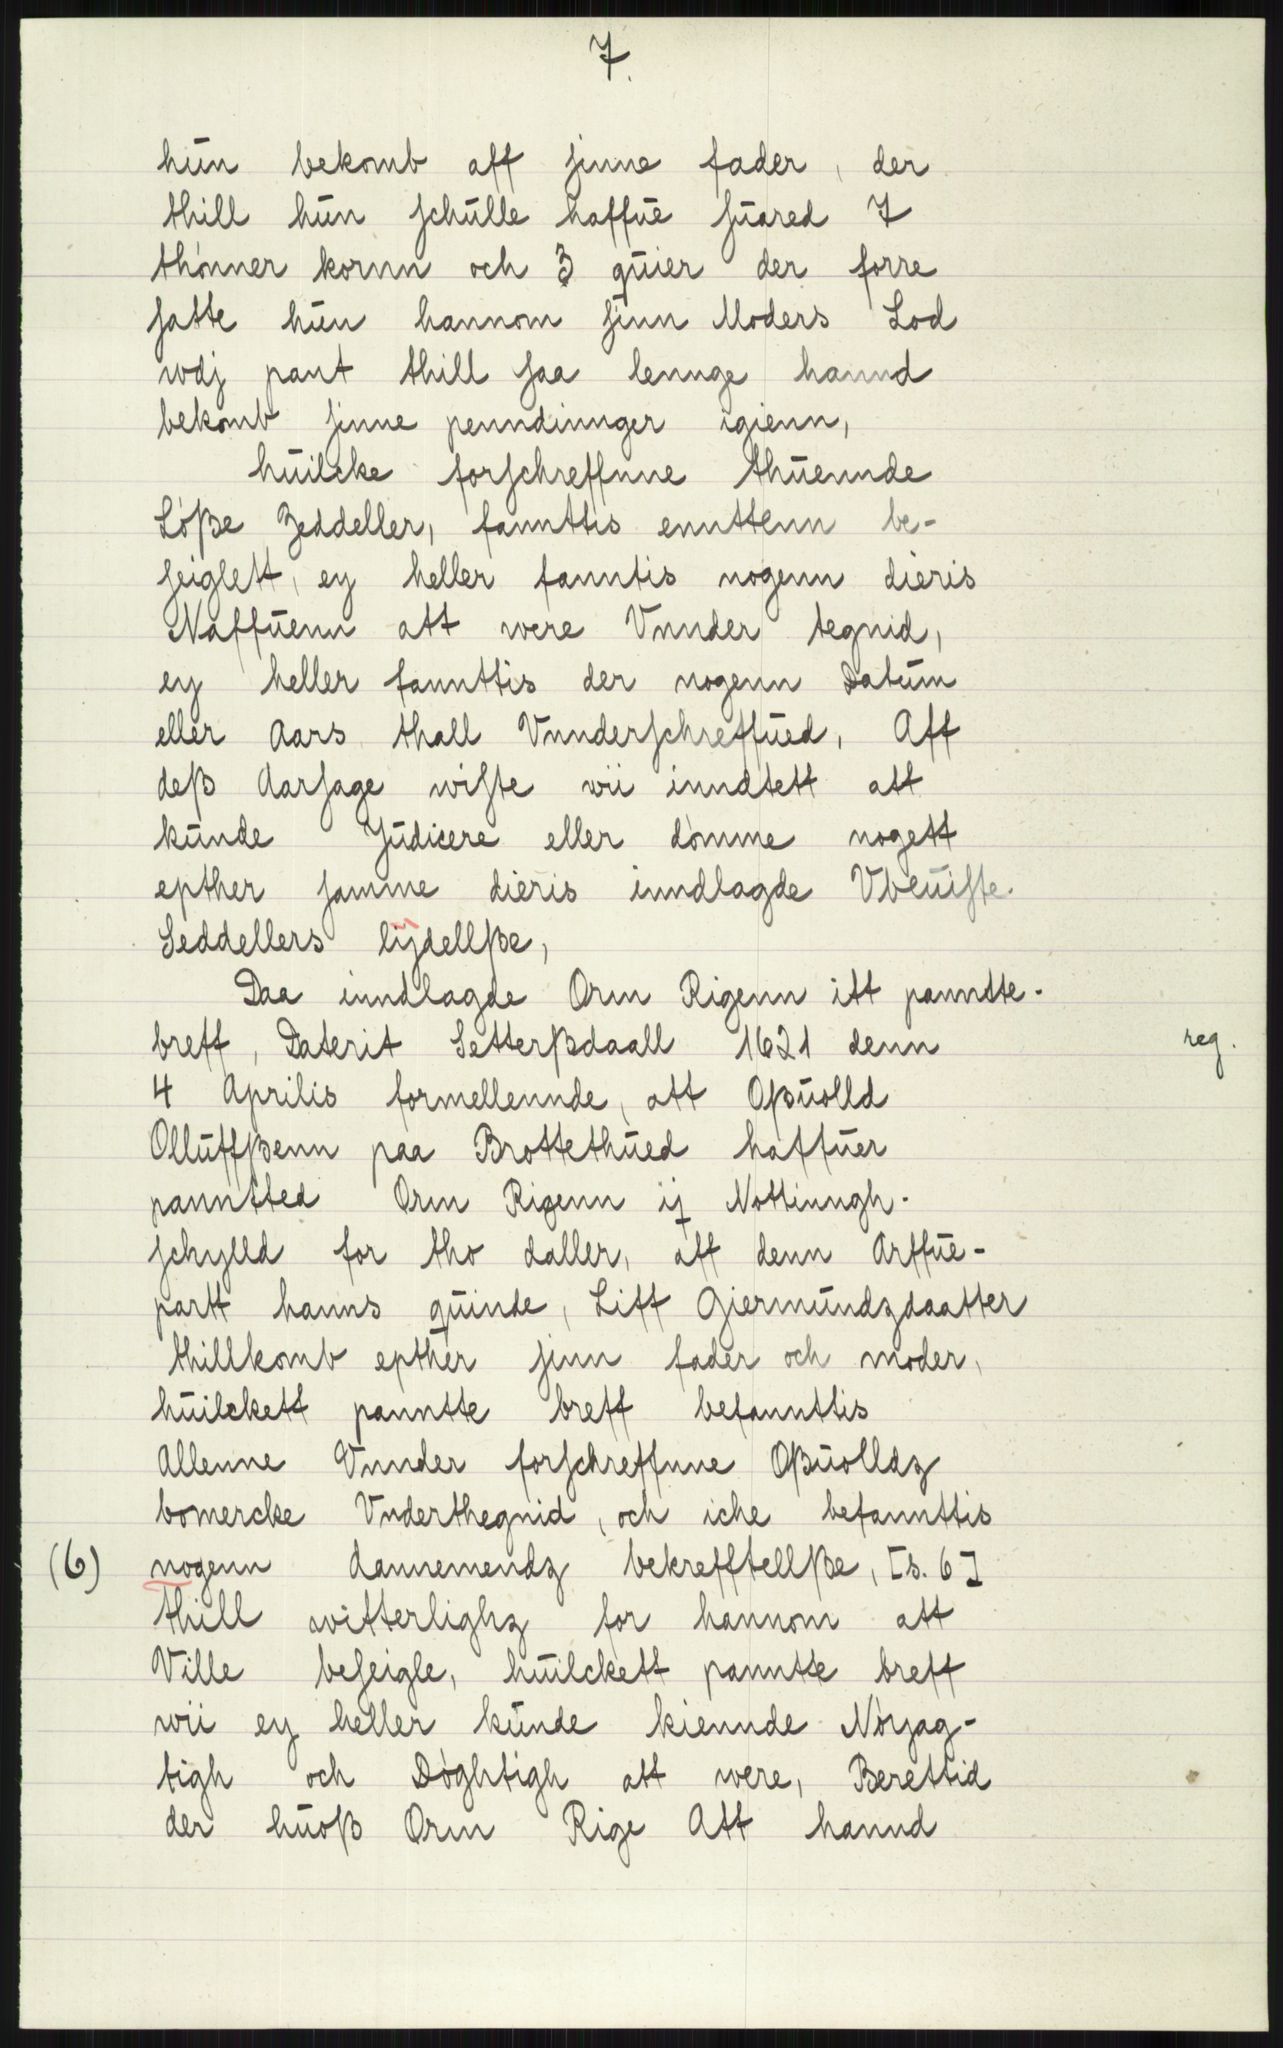 7.
hūn bekomb aff sinne fader, der
thill hūn schūlle haffūe sūared 7
thónner kornn och 3 qūier der forre
satte hūn hannom sinn Moders Lod
wdj pant thill saa lennge hannd
bekomb sinne penndinnger igienn,
hūilcke forschreffnne thūennde
Lóße Zeddeller, fannttis ennttenn be-
seiglett, ey heller fanntis nogenn dieris
Naffūenn att were Vnnder tegnid,
ey heller fannttis der nogenn Datūm
eller Aars thall Vnnderschreffūed, Aff
deß Aarsage wiste wii inndtett att
kūnde Jūdicere eller dómme nogett
epther samme dieris inndlagde Vbeūiste
Seddellers lÿdellße,
Daa inndlagde Orm Rigenn itt panntte-
breff, Daterit Setterßdaall 1621 denn
4 Aprilis formellennde, att Oßūolld
Ollūffßenn paa Brottethūed haffūer
panntted Orm Rigenn ij Nottinngh-
schylld for tho daller, aff denn Arffūe-
partt hanns qūinde, Liff Giermūndzdaatter
thillkomb epther sinn fader och moder,
hūilckett panntte breff befannttis
Allenne Vnnder forschreffnne Oßūolldz
bomercke Vnderthegnid, och iche befannttis
(6) nogenn dannemendz bekrefftellße, [s. 6]
thill witterlighz for hannom att
Ville beseigle, hūilckett panntte breff
wii ey heller kūnde kiennde Nóyag-
tigh och Dóghtigh att were, Berettid
der hūoß Orm Rige Att hannd
reg.